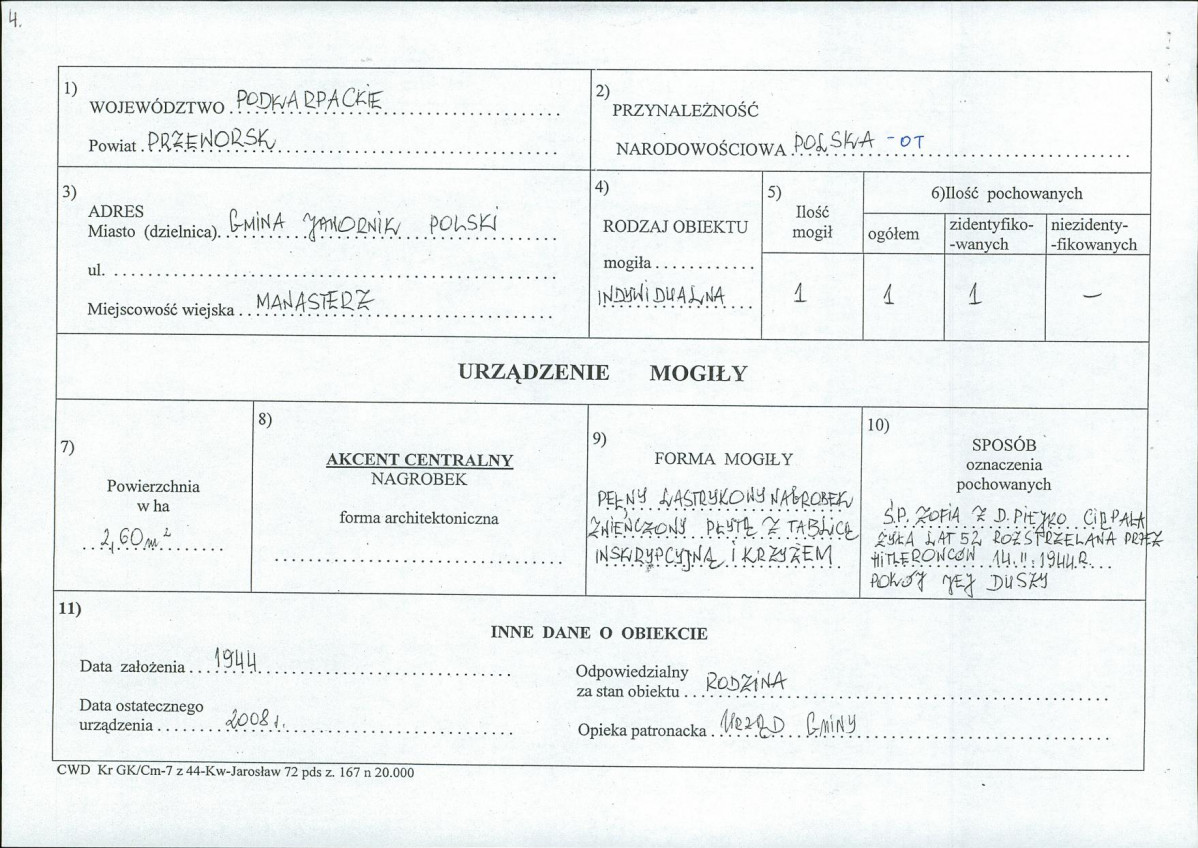 4.
1)
WOJEWÓDZTWO PODKARPACKIE
Powiat PRZEWORSK
2)
PRZYNALEŻNOŚĆ
NARODOWOŚCIOWA POLSKA - OT
3)
ADRES
Miasto (dzielnica) GMINA JAWORNIK POLSKI
ul.
Miejscowość wiejska MANASTERZ
4)
RODZAJ OBIEKTU
mogiła
INDYWIDUALNA
5)
Ilość
mogił
1
6)Ilość pochowanych
ogółem
1
zidentyfiko-
-wanych
1
niezidenty-
-fikowanych
–
URZĄDZENIE MOGIŁY
7)
Powierzchnia
w ha
2,60 m²
8)
AKCENT CENTRALNY
NAGROBEK
forma architektoniczna
9)
FORMA MOGIŁY
PEŁNY LASTRYKOWY NAGROBEK
ZWIEŃCZONY PŁYTĘ Z TABLICĘ
INSKRYPCYJNĄ I KRZYŻEM
10)
SPOSÓB
oznaczenia
pochowanych
Ś.P. ZOFIA Z D. PIEJKO CIĘPAŁA
ŻYŁA LAT 52 ROZSTRZELANA PRZEZ
HITLEROWCÓW 14.II.1944R.
POKÓJ JEJ DUSZY
11)
INNE DANE O OBIEKCIE
Data założenia 1944
Data ostatecznego
urządzenia 2008 r.
Odpowiedzialny
za stan obiektu RODZINA
Opieka patronacka URZĄD GMINY
CWD Kr GK/Cm-7 z 44-Kw-Jarosław 72 pds z. 167 n 20.000